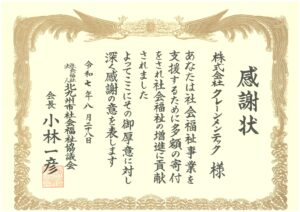 感謝状
株式会社 クレーンメンテック 様
あなたは社会福祉事業を
支援するために多額の寄付
をされ社会福祉の増進に貢献
されました
よってここにその御厚意に対し
深く感謝の意を表します
令和七年八月二十八日
社会福祉法人
北九州市社会福祉協議会
会長 小林一彦